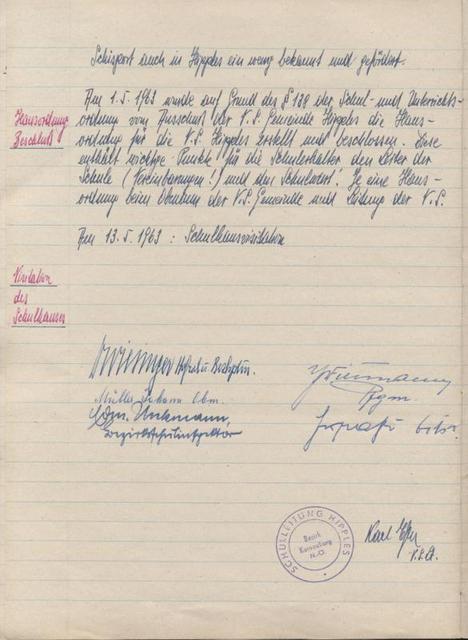 Schisport auch in Hipples ein wenig bekannt und gefördert.
Hausordnung
Beschluß
Am 1.5.1963 wurde auf Grund des § 128 der Schul- und Unterrichts-
ordnung vom Ausschuß der V.S. Gemeinde Hipples die Haus-
ordnung für die V.S. Hipples erstellt und beschlossen. Diese
enthält wichtige Punkte für die Schulerhalter, den Leiter der
Schule (Vereinbarungen!) und den Schulwart. Je eine Haus-
ordnung beim Obmann der V.S. Gemeinde und Leitung der V.S.
Am 13.5.1963: Schulhausvisitation
Visitation
des
Schulhauses
Müller Johann Obm.
Bezirksschulinspektor
Bgm.
SCHULLEITUNG HIPPLES
Bezirk
Korneuburg
N.-Ö.
Karl